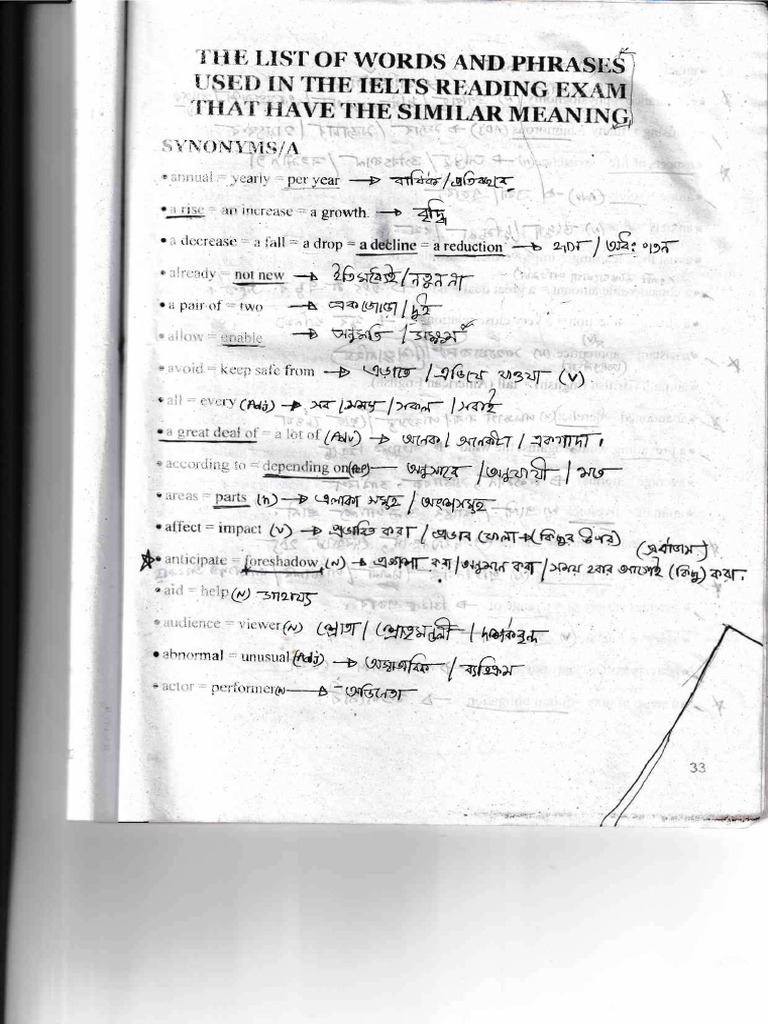 THE LIST OF WORDS AND PHRASES
USED IN THE IELTS READING EXAM
THAT HAVE THE SIMILAR MEANING
SYNONYMS/A
• annual = yearly = per year → বার্ষিক/প্রতিবছর
• a rise = an increase = a growth. → বৃদ্ধি
• a decrease = a fall = a drop = a decline = a reduction → হ্রাস /
• already = not new → ইতিমধ্যেই/নতুন না
• a pair of = two → একজোড়া/দুই
• allow = enable → অনুমতি /
• avoid = keep safe from → এড়াতে /এড়িয়ে যাওয়া (v)
• all = every (Adj) → সব /সমস্ত /সকল /সবাই
• a great deal of = a lot of (Adv) → অনেক/ অনেকটা / একগাদা।
• according to = depending on → অনুসারে /অনুযায়ী / মতে
• areas = parts (n) → এলাকা সমূহ / অংশসমূহ
• affect = impact (v) → প্রভাবিত করা / প্রভাব ফেলা → (কিছুর উপর)
(পূর্বাভাস)
• anticipate = foreshadow (N) → প্রত্যাশা করা/অনুমান করা /সময় হবার আগেই (কিছু) করা।
• aid = help (N) সাহায্য
• audience = viewer (N) শ্রোতা / শ্রোতৃমণ্ডলী / দর্শকবৃন্দ
• abnormal = unusual (Adj) → অস্বাভাবিক / ব্যতিক্রম
• actor = performer (N) → অভিনেতা
33